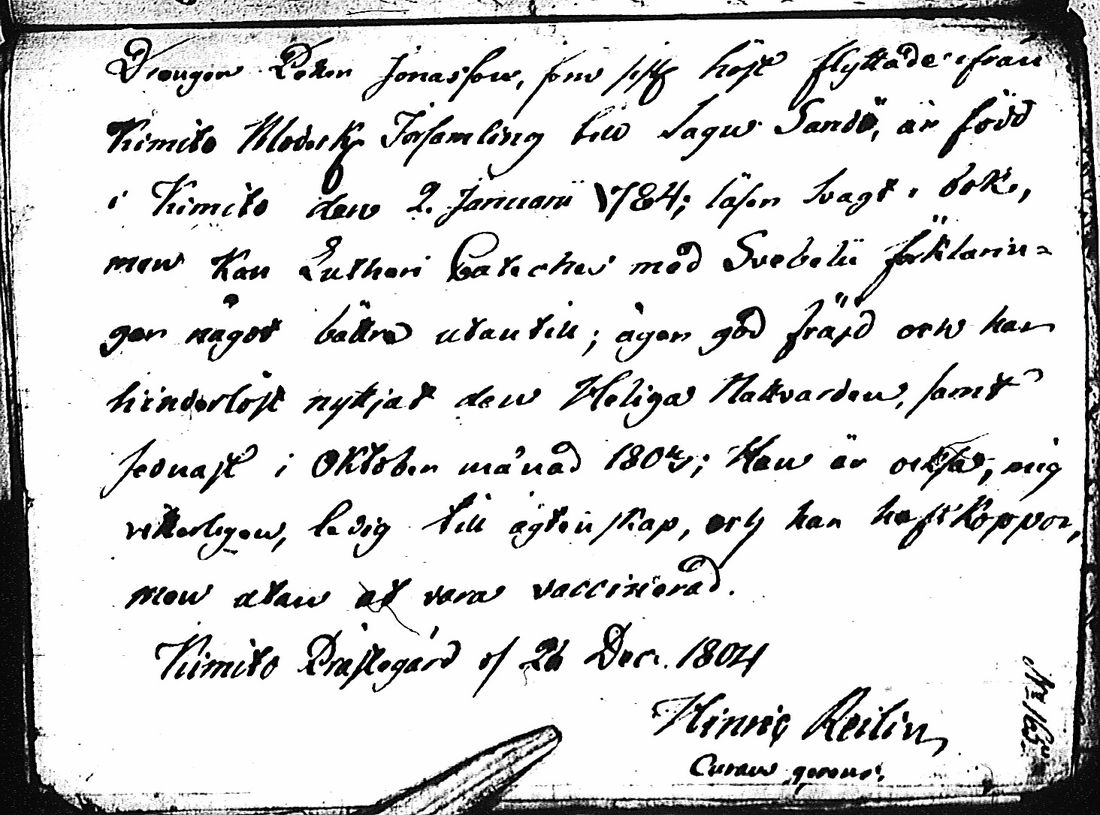 Drengen Peter Jonasson, som sistl. höst flyttade ifrån
Kimito Moderk. Församling till Sagu Sandö, är född
i Kimito den 2. Januarii 1784; läser svagt i bok,
men kan Lutheri Cateches med Svebelii förklarin=
gar något bättre utantill; äger god fräjd och har
hinderlöst nyttjat den Heliga Nattvarden, samt
sednast i Oktober månad 1804; Han är också, mig
vitterligen, ledig till ägtenskap, och har haft Koppor,
men utan at vara vaccinerad.
Kimito Prästegård d. 26 Decr. 1804
Hinric Reilin,
Curam gerens.
No 165